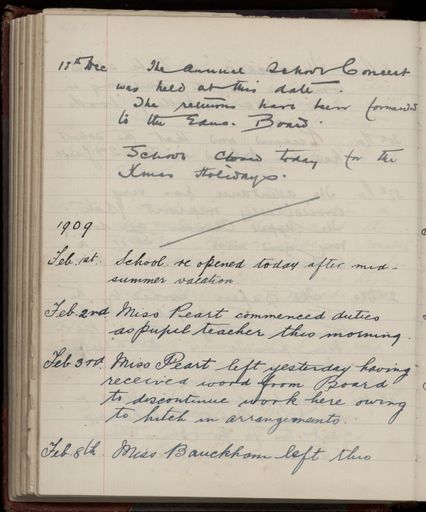 18th Dec The Annual School Concert
was held at this date.
The returns have been forwarded
to the Educ. Board.
School closed today for the
Xmas Holidays.
1909
Feb. 1st School re opened today after mid-
summer vacation.
Feb. 2nd Miss Peart commenced duties
as pupil teacher this morning.
Feb. 3rd. Miss Peart left yesterday having
received word from Board
to discontinue work here owing
to hitch in arrangements.
Feb. 8th Miss Bauckham left this